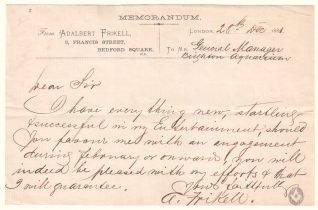 MEMORANDUM.
From ADALBERT FRIKELL,
8, FRANCIS STREET,
BEDFORD SQUARE.
LONDON, 28th Dec 188
To Mr. General Manager
Brighton Aquarium
Dear Sir
I have everything new, startling
& successful in my Entertainment, should
you favour me with an engagement
during February or onwards I, you will
indeed be pleased with my efforts & that
I will guarantee.
Yours faithfully
A. Frikell.